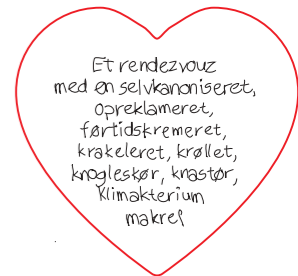 Et rendezvouz
med en selvkanoniseret,
opreklameret,
førtidskremeret,
krakeleret, krøllet,
knogleskør, knastør,
klimakterium
makrel